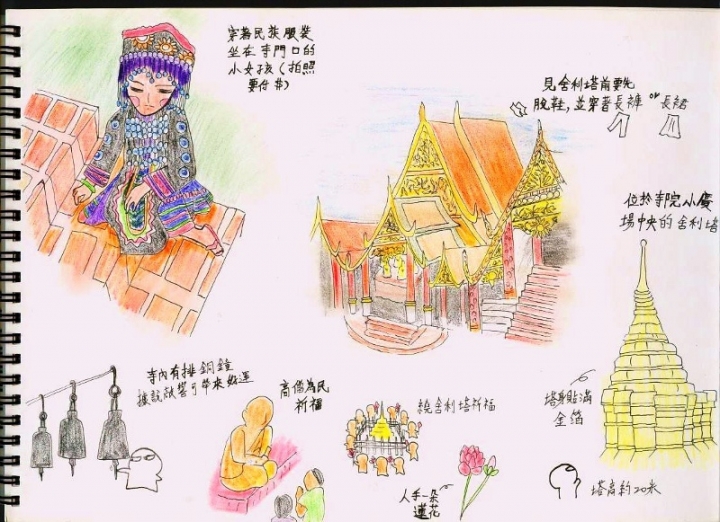 穿著民族服裝
坐在寺門口的
小女孩(拍照
要付$)
見舍利塔前要先
脫鞋,並穿著長褲 or 長裙
位於寺院小廣
場中央的舍利塔
寺內有排銅鐘
據說敲響可帶來好運
高僧為民
祈福
繞舍利塔祈福
人手一朵
蓮花
塔身貼滿
金箔
塔高約20米